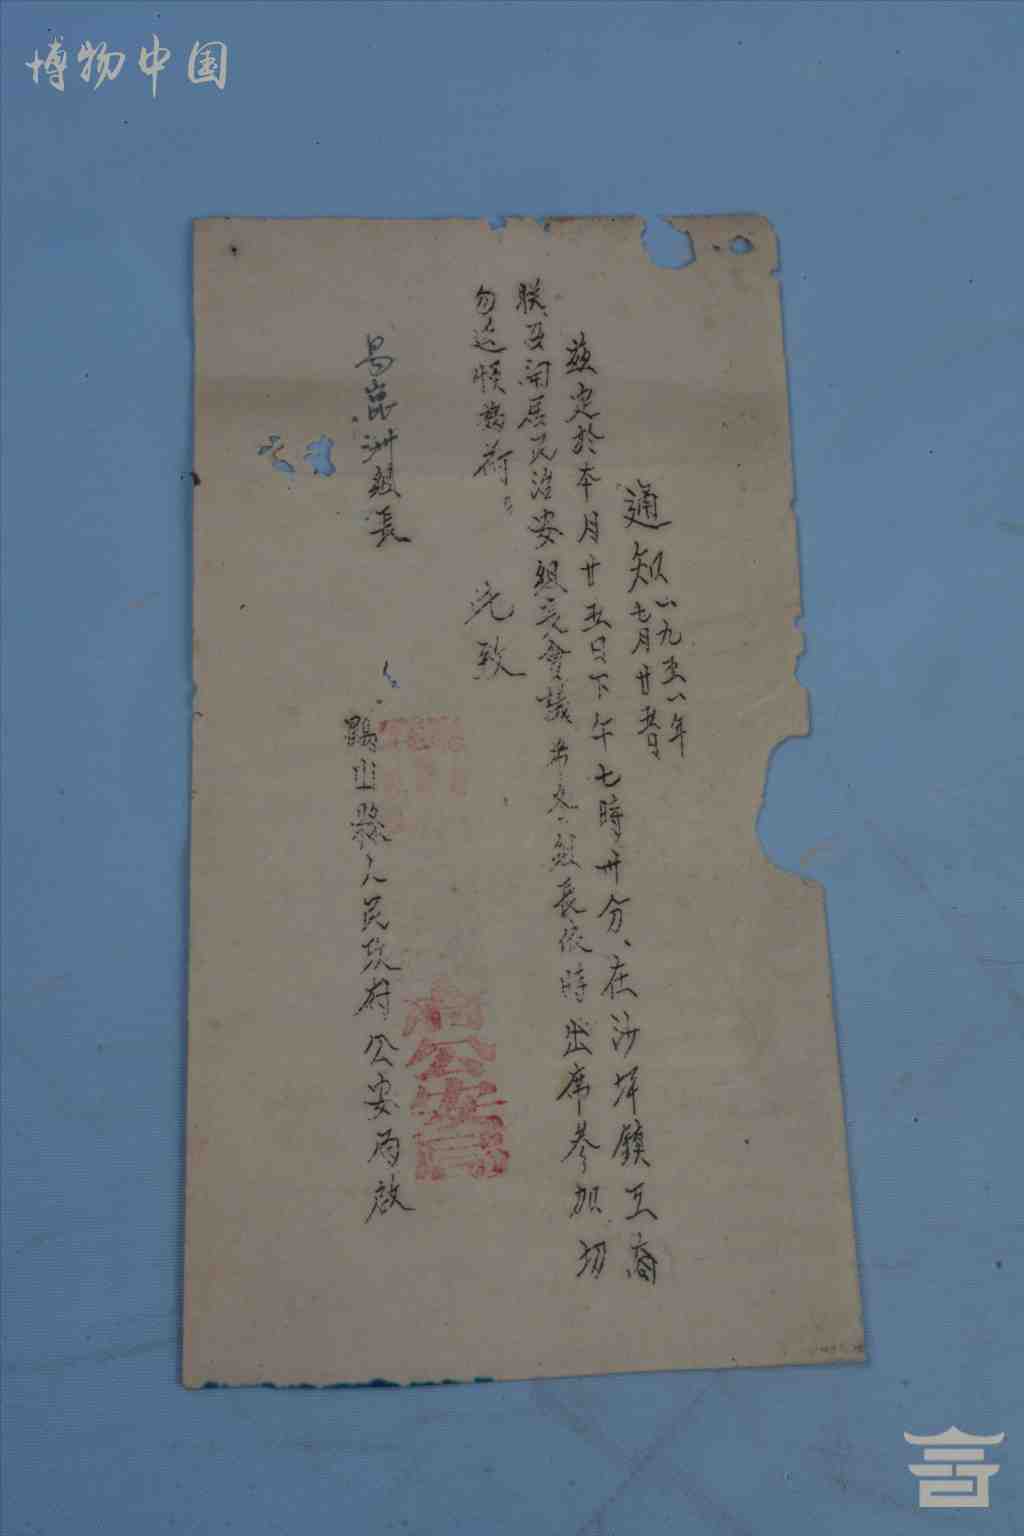 博物中国
通知
一九五一年
七月廿五日
茲定於本月廿五日下午七時卅分、在沙坪鎮工商
联召開居民治安組長會議 希各組長依時出席參加切
勿延悞為荷。 此致
馮崑洲組長
鶴山縣人民政府公安局啟
府公安局